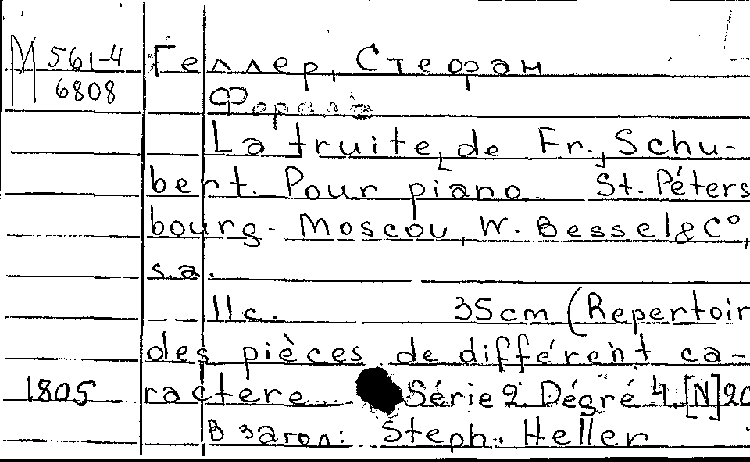 М 561-4 Геллер, Стефан
6808 Форель
La truite, de Fr. Schu-
bert. Pour piano St. Péters
bourg - Moscou, W. Bessel & C°,
s.a.
11с. 35cm (Repertoir
des pièces de différent ca-
1805 ractere... Série 2 Dégré 4. [N] 20
В загол: Steph. Heller